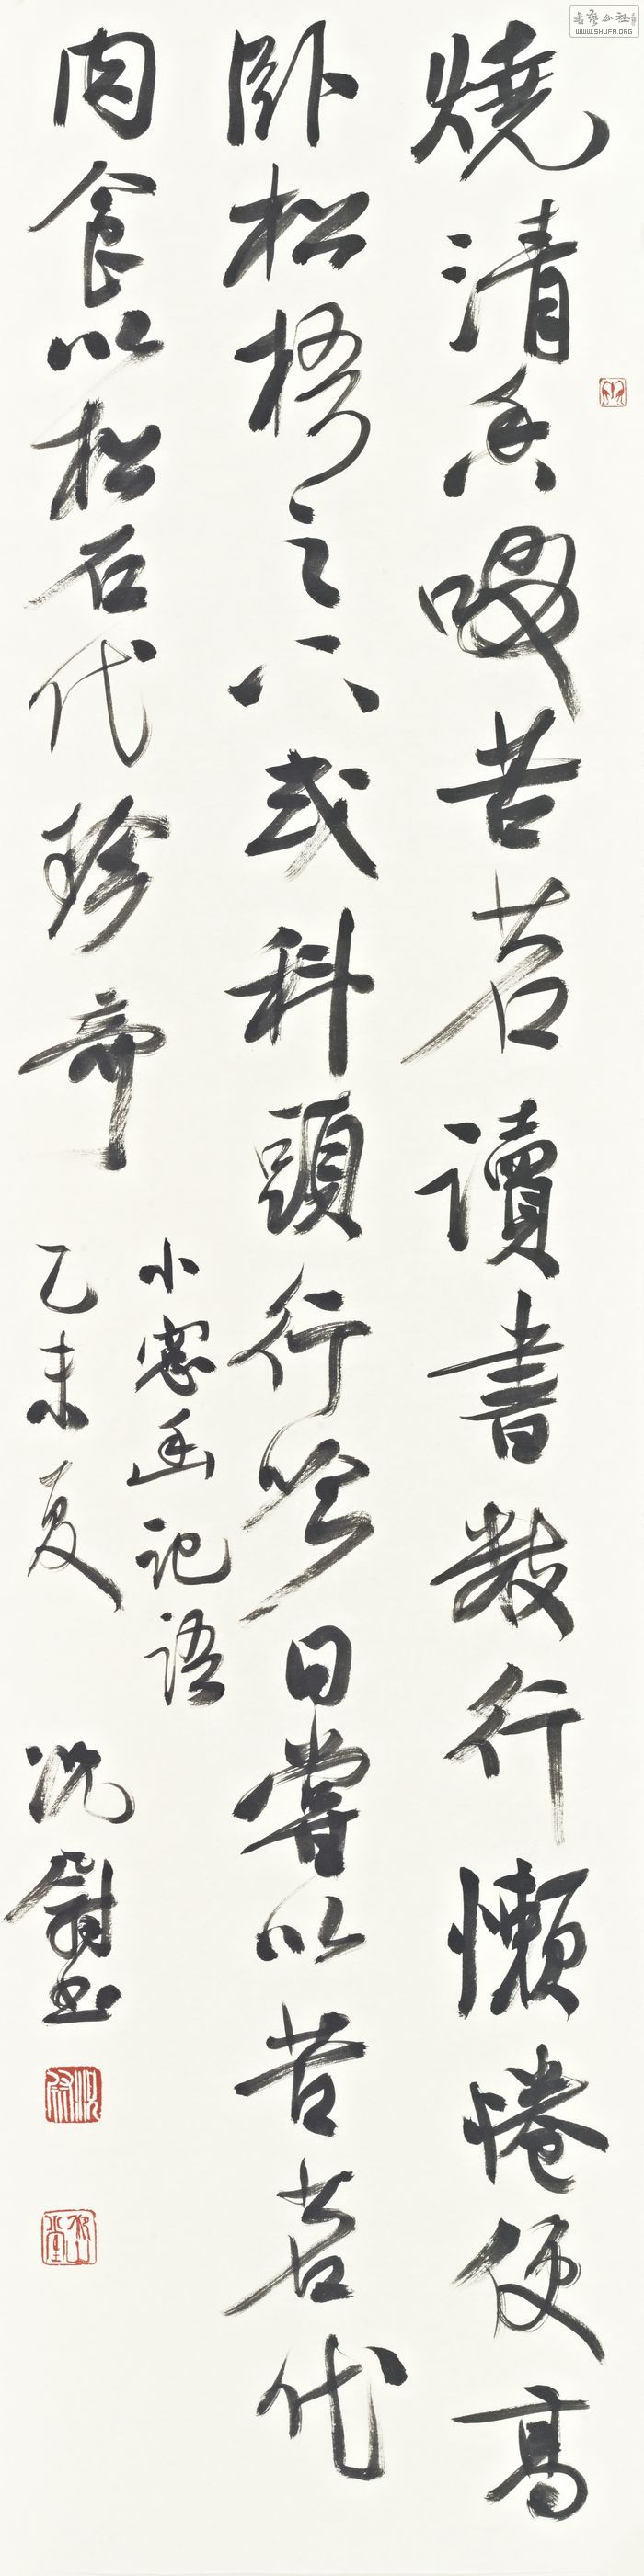 燒清香啜苦茗讀書數行懶倦便高
臥松梧之下或科頭行吟日嘗以苦茗代
肉食以松石代珍奇
小窗幽記語
乙未夏 況尉書
WWW.SHUFA.ORG